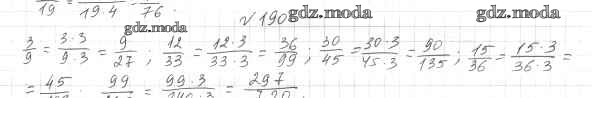 19 = 19·4 76 .
№190 gdz.moda gdz.moda
gdz.moda
3/9 = 3·3/9·3 = 9/27 ; 12/33 = 12·3/33·3 = 36/99 ; 30/45 = 30·3/45·3 = 90/135 ; 15/36 = 15·3/36·3 =
= 45 . 99 = 99·3 = 297 .